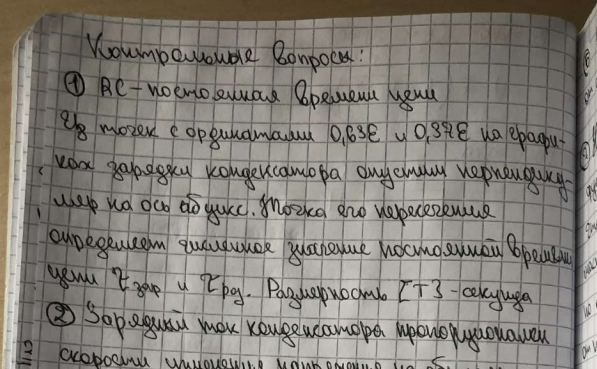 Контрольные вопросы:
① RC-постоянная времени цепи
Из точек с ординатами 0,63ε и 0,37ε на графи-
ках зарядки конденсатора опустим перпендику-
ляр на ось абцисс. Точка его пересечения
определяет численное значение постоянной времени
цепи τзар и τраз. Размерность [T] - секунда
② Зарядный ток конденсатора пропорционален
скорости изменения напряжения на